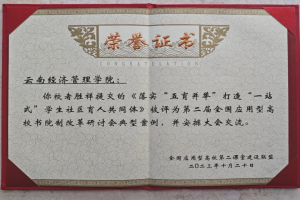 荣誉证书
云南经济管理学院：
你校者胜祥提交的《落实“五育并举”打造“一站
式”学生社区育人共同体》被评为第二届全国应用型高
校书院制改革研讨会典型案例，并安排大会交流。
全国应用型高校第二课堂建设联盟
二〇二三年十月二十日